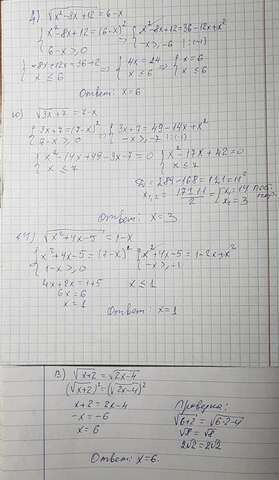 д) √x²-3x+12 = 6-x
{ x²-8x+12=(6-x)² { x²-8x+12=36-12x+x²
6-x≥0 -x≥-6 |:(-1)
{ -8x+12x=36-12 { 4x=24 { x=6
x≤6 x≤6 x≤6
Ответ: x=6
ю) √3x+7 = 7-x
{ 3x+7=(7-x)² { 3x+7=49-14x+x²
7-x≥0 -x≥-7 |:(-1)
{ x²-14x+49-3x-7=0 { x²-17x+42=0
x≤7 x≤7
D=289-168=121=11²
x₁,₂=17±11/2= x₁=14 пост. кор.
x₂=3
Ответ: x=3
√x²+4x-5 = 1-x
{ x²+4x-5=(1-x)² { x²+4x-5=1-2x+x²
1-x≥0 -x≥-1
4x+2x=1+5 x≤1
6x=6
x=1
Ответ: x=1
в) √x+2=√2x-4
(√x+2)²=(√2x-4)²
x+2=2x-4
-x=-6
x=6
Проверка:
√6+2=√6·2-4
√8=√8
2√2=2√2
Ответ: x=6.